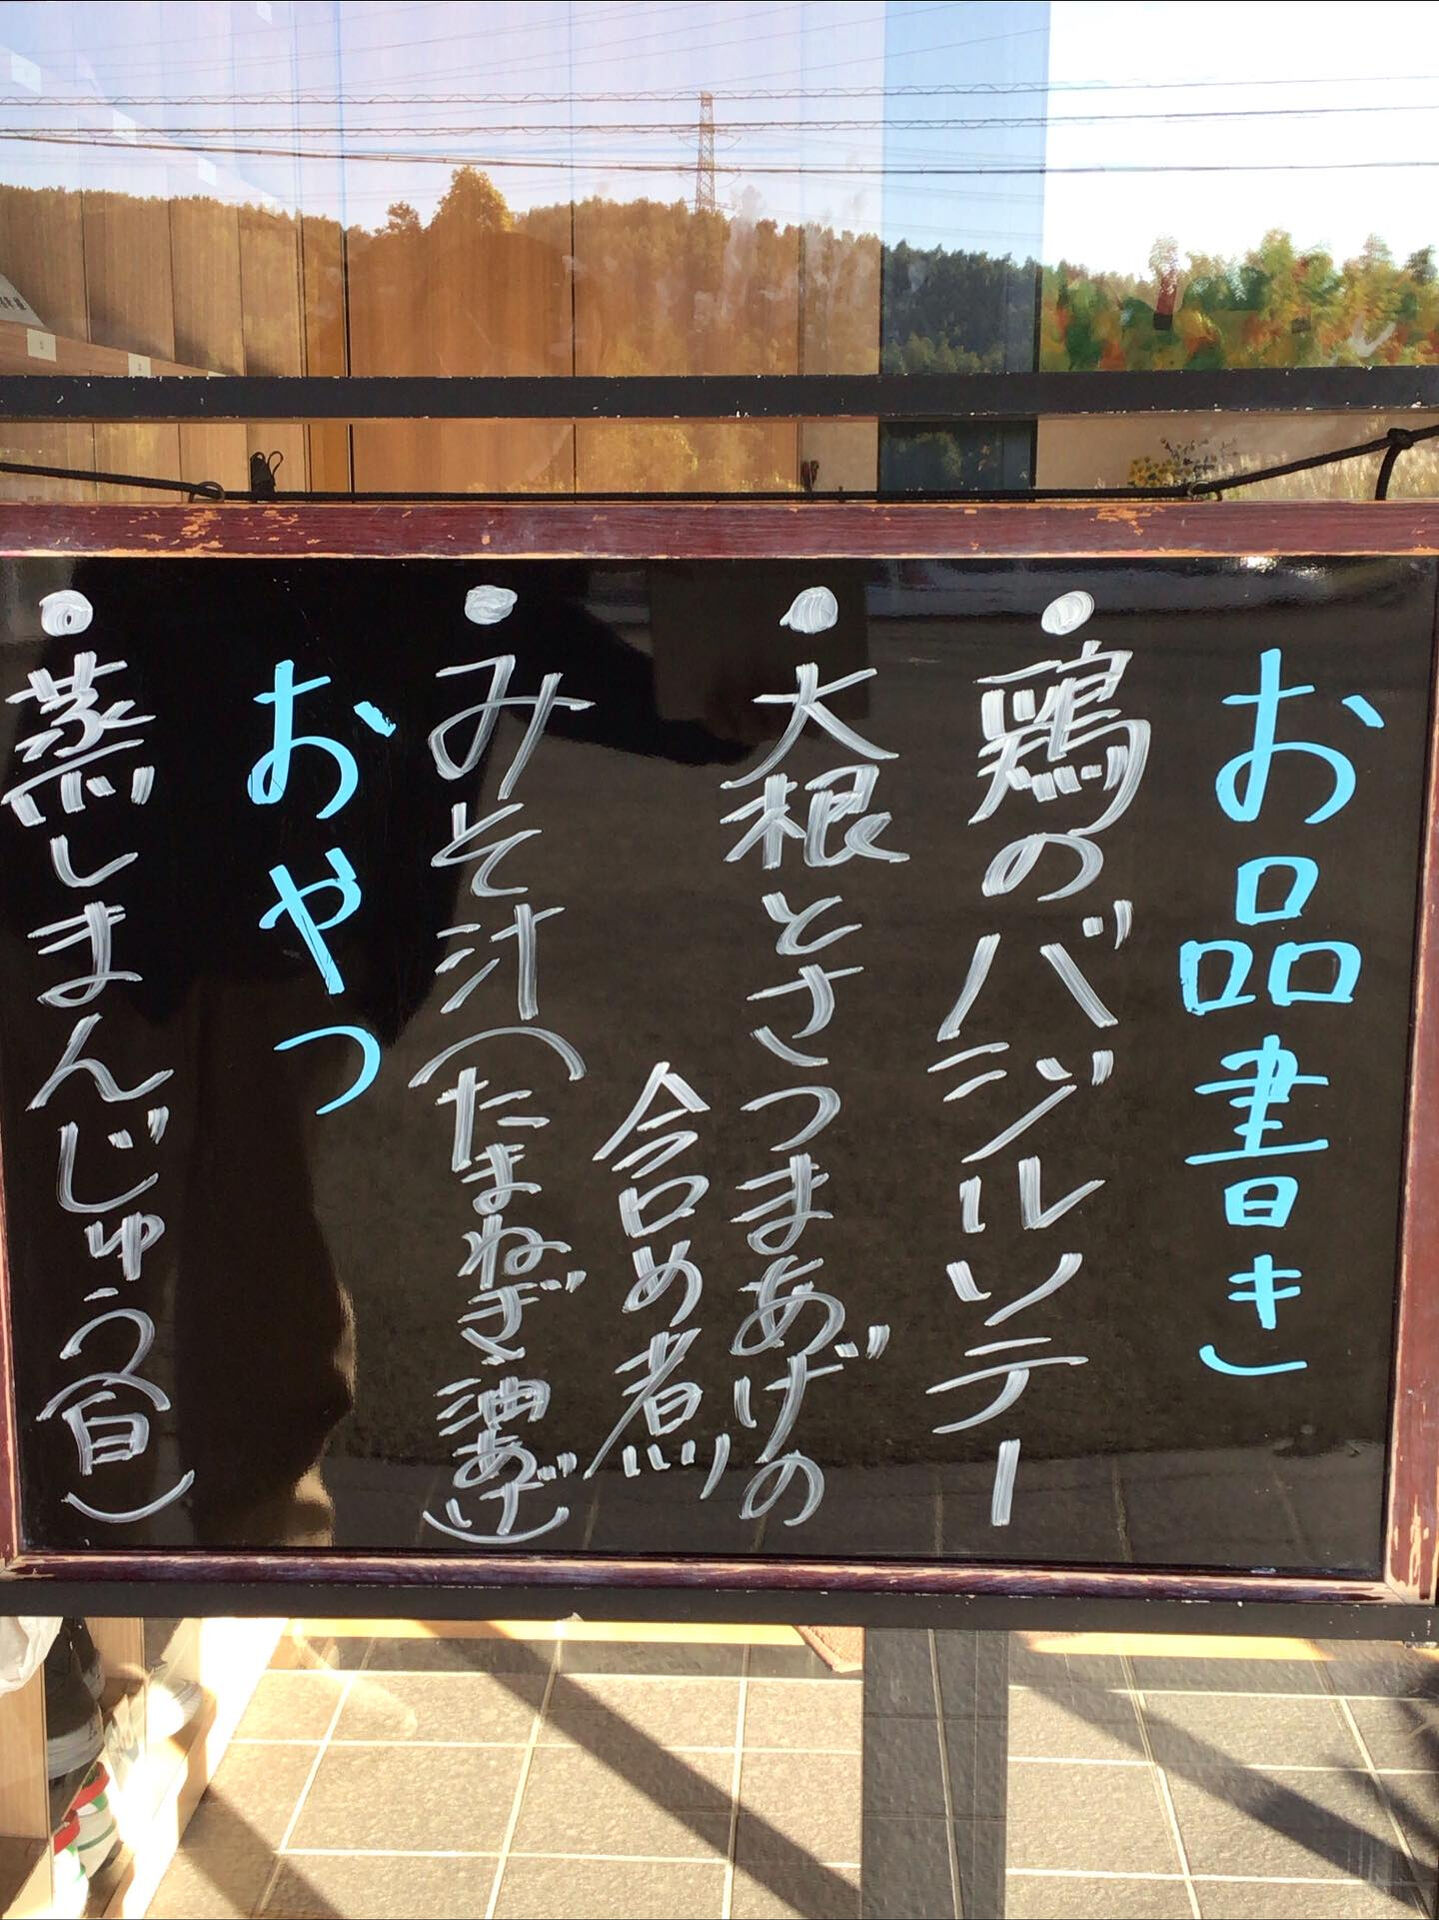 お品書き
●鶏のバジルソテー
●大根とさつまあげの
含め煮
●みそ汁(たまねぎ油あげ)
おやつ
●蒸しまんじゅう(白)